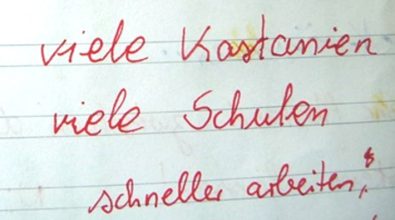 viele Kastanien
viele Schulen
schneller arbeiten,